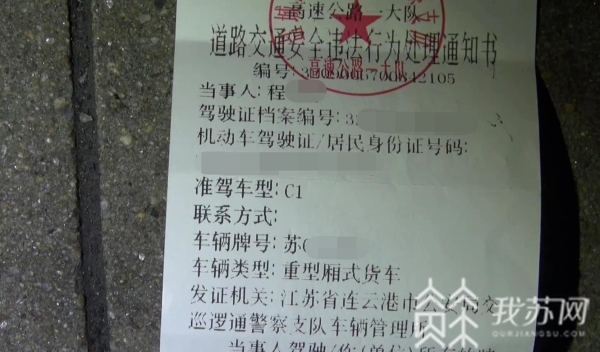 高速公路一大队
道路交通安全违法行为处理通知书
编号:
高速公路一大队
当事人:程
驾驶证档案编号:3
机动车驾驶证/居民身份证号码:
准驾车型:C1
联系方式:
车辆牌号:苏
车辆类型:重型厢式货车
发证机关:江苏省连云港市公安局交
巡逻通警察支队车辆管理所
当事人驾驶/你(单位)所有的
我苏网
OURJIANGSU.COM